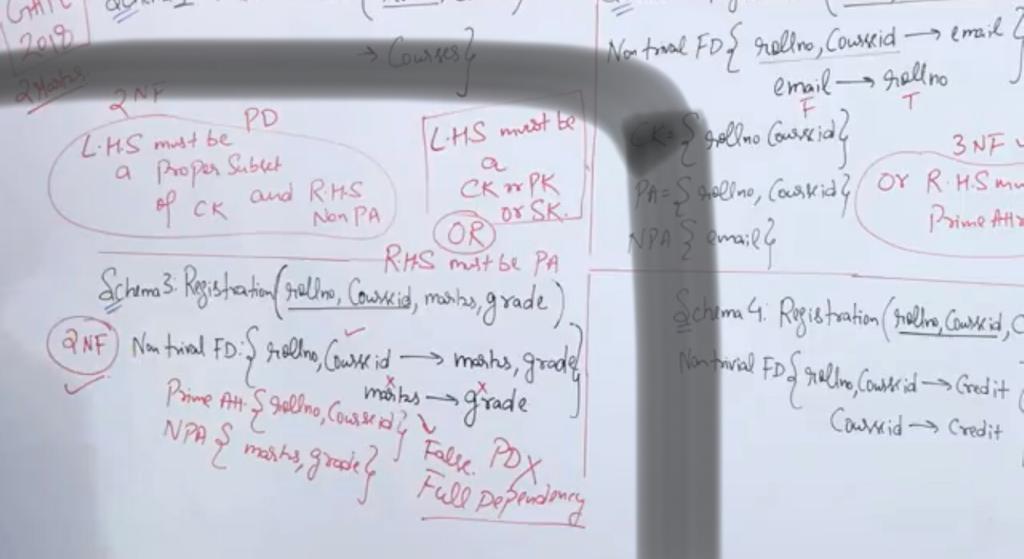 GATE
2018
2 Marks.
→ Courses}
2NF
PD
L.H.S must be
a Proper Subset
of CK and R.H.S
Non PA
L.H.S must be
a
CK or PK
or SK.
OR
R.H.S must be PA
Schema3: Registration(rollno, Courseid, marks, grade)
2NF
Non trival FD:{rollno, Courseid → marks, grade}
marks → grade
Prime Att. {rollno, Courseid}
NPA {marks, grade}
False. PD X
Full Dependency
Non trival FD{rollno, Courseid → email}
email → rollno
F T
CK={rollno Courseid}
PA={rollno, Courseid}
NPA {email}
3NF
Or R.H.S mu
Prime Att
Schema 4: Registration(rollno, Courseid, C
Nontrivial FD{rollno, Courseid → Credit
Courseid → Credit